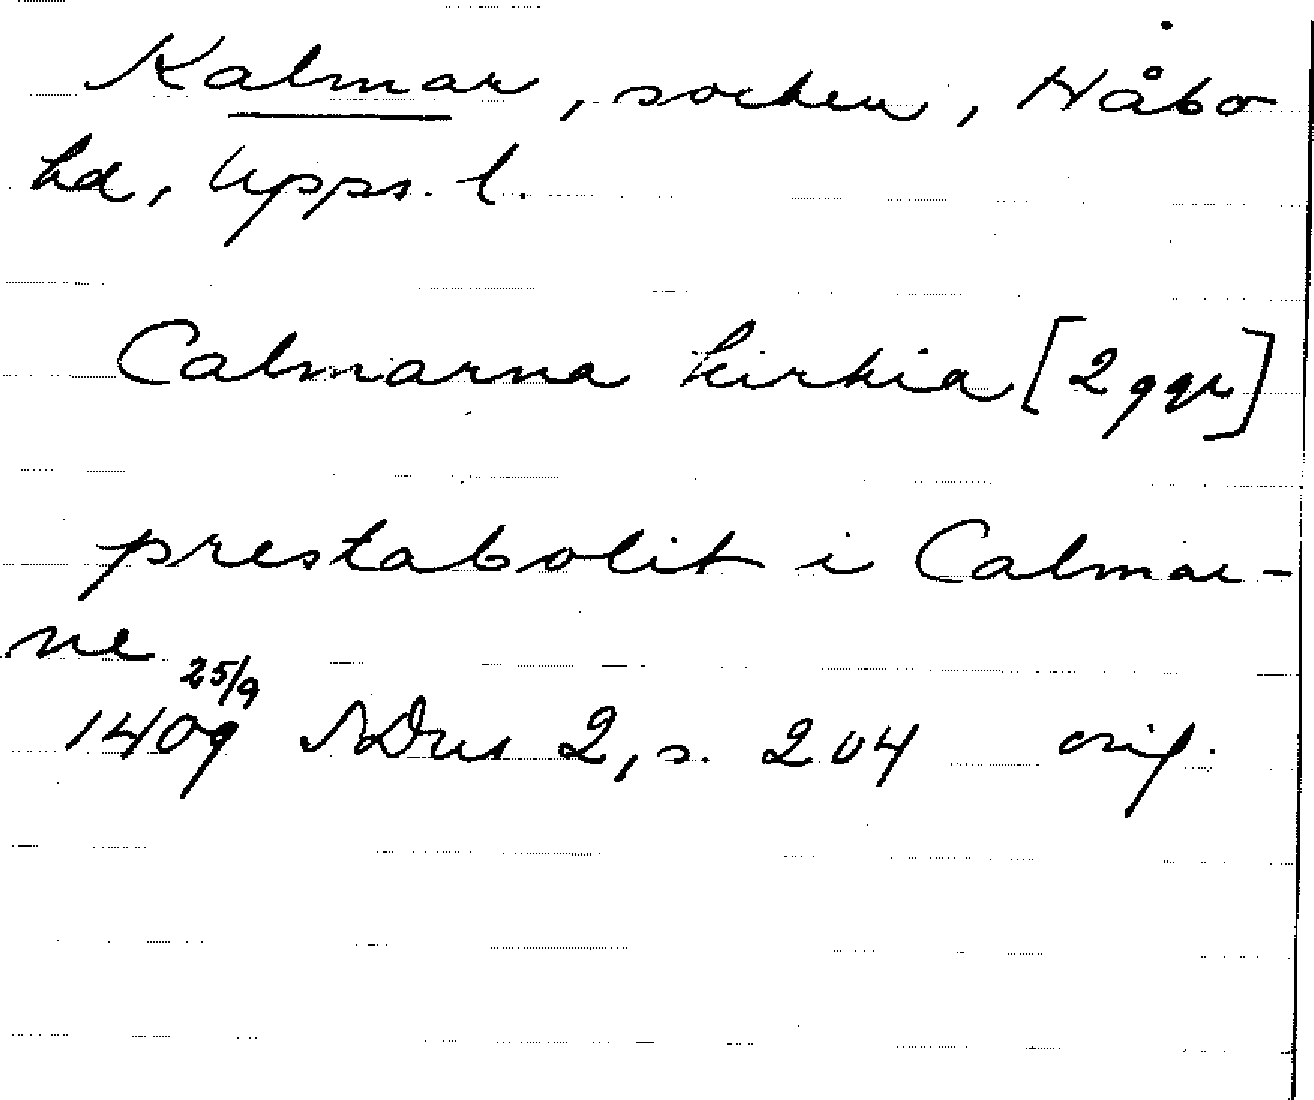 Kalmar, socken, Håbo
hd, Upps. l.
Calmarna kirkia [2 ggr]
prestabolit i Calmar-
ne
25/9
1409 SDns 2, s. 204 orig.